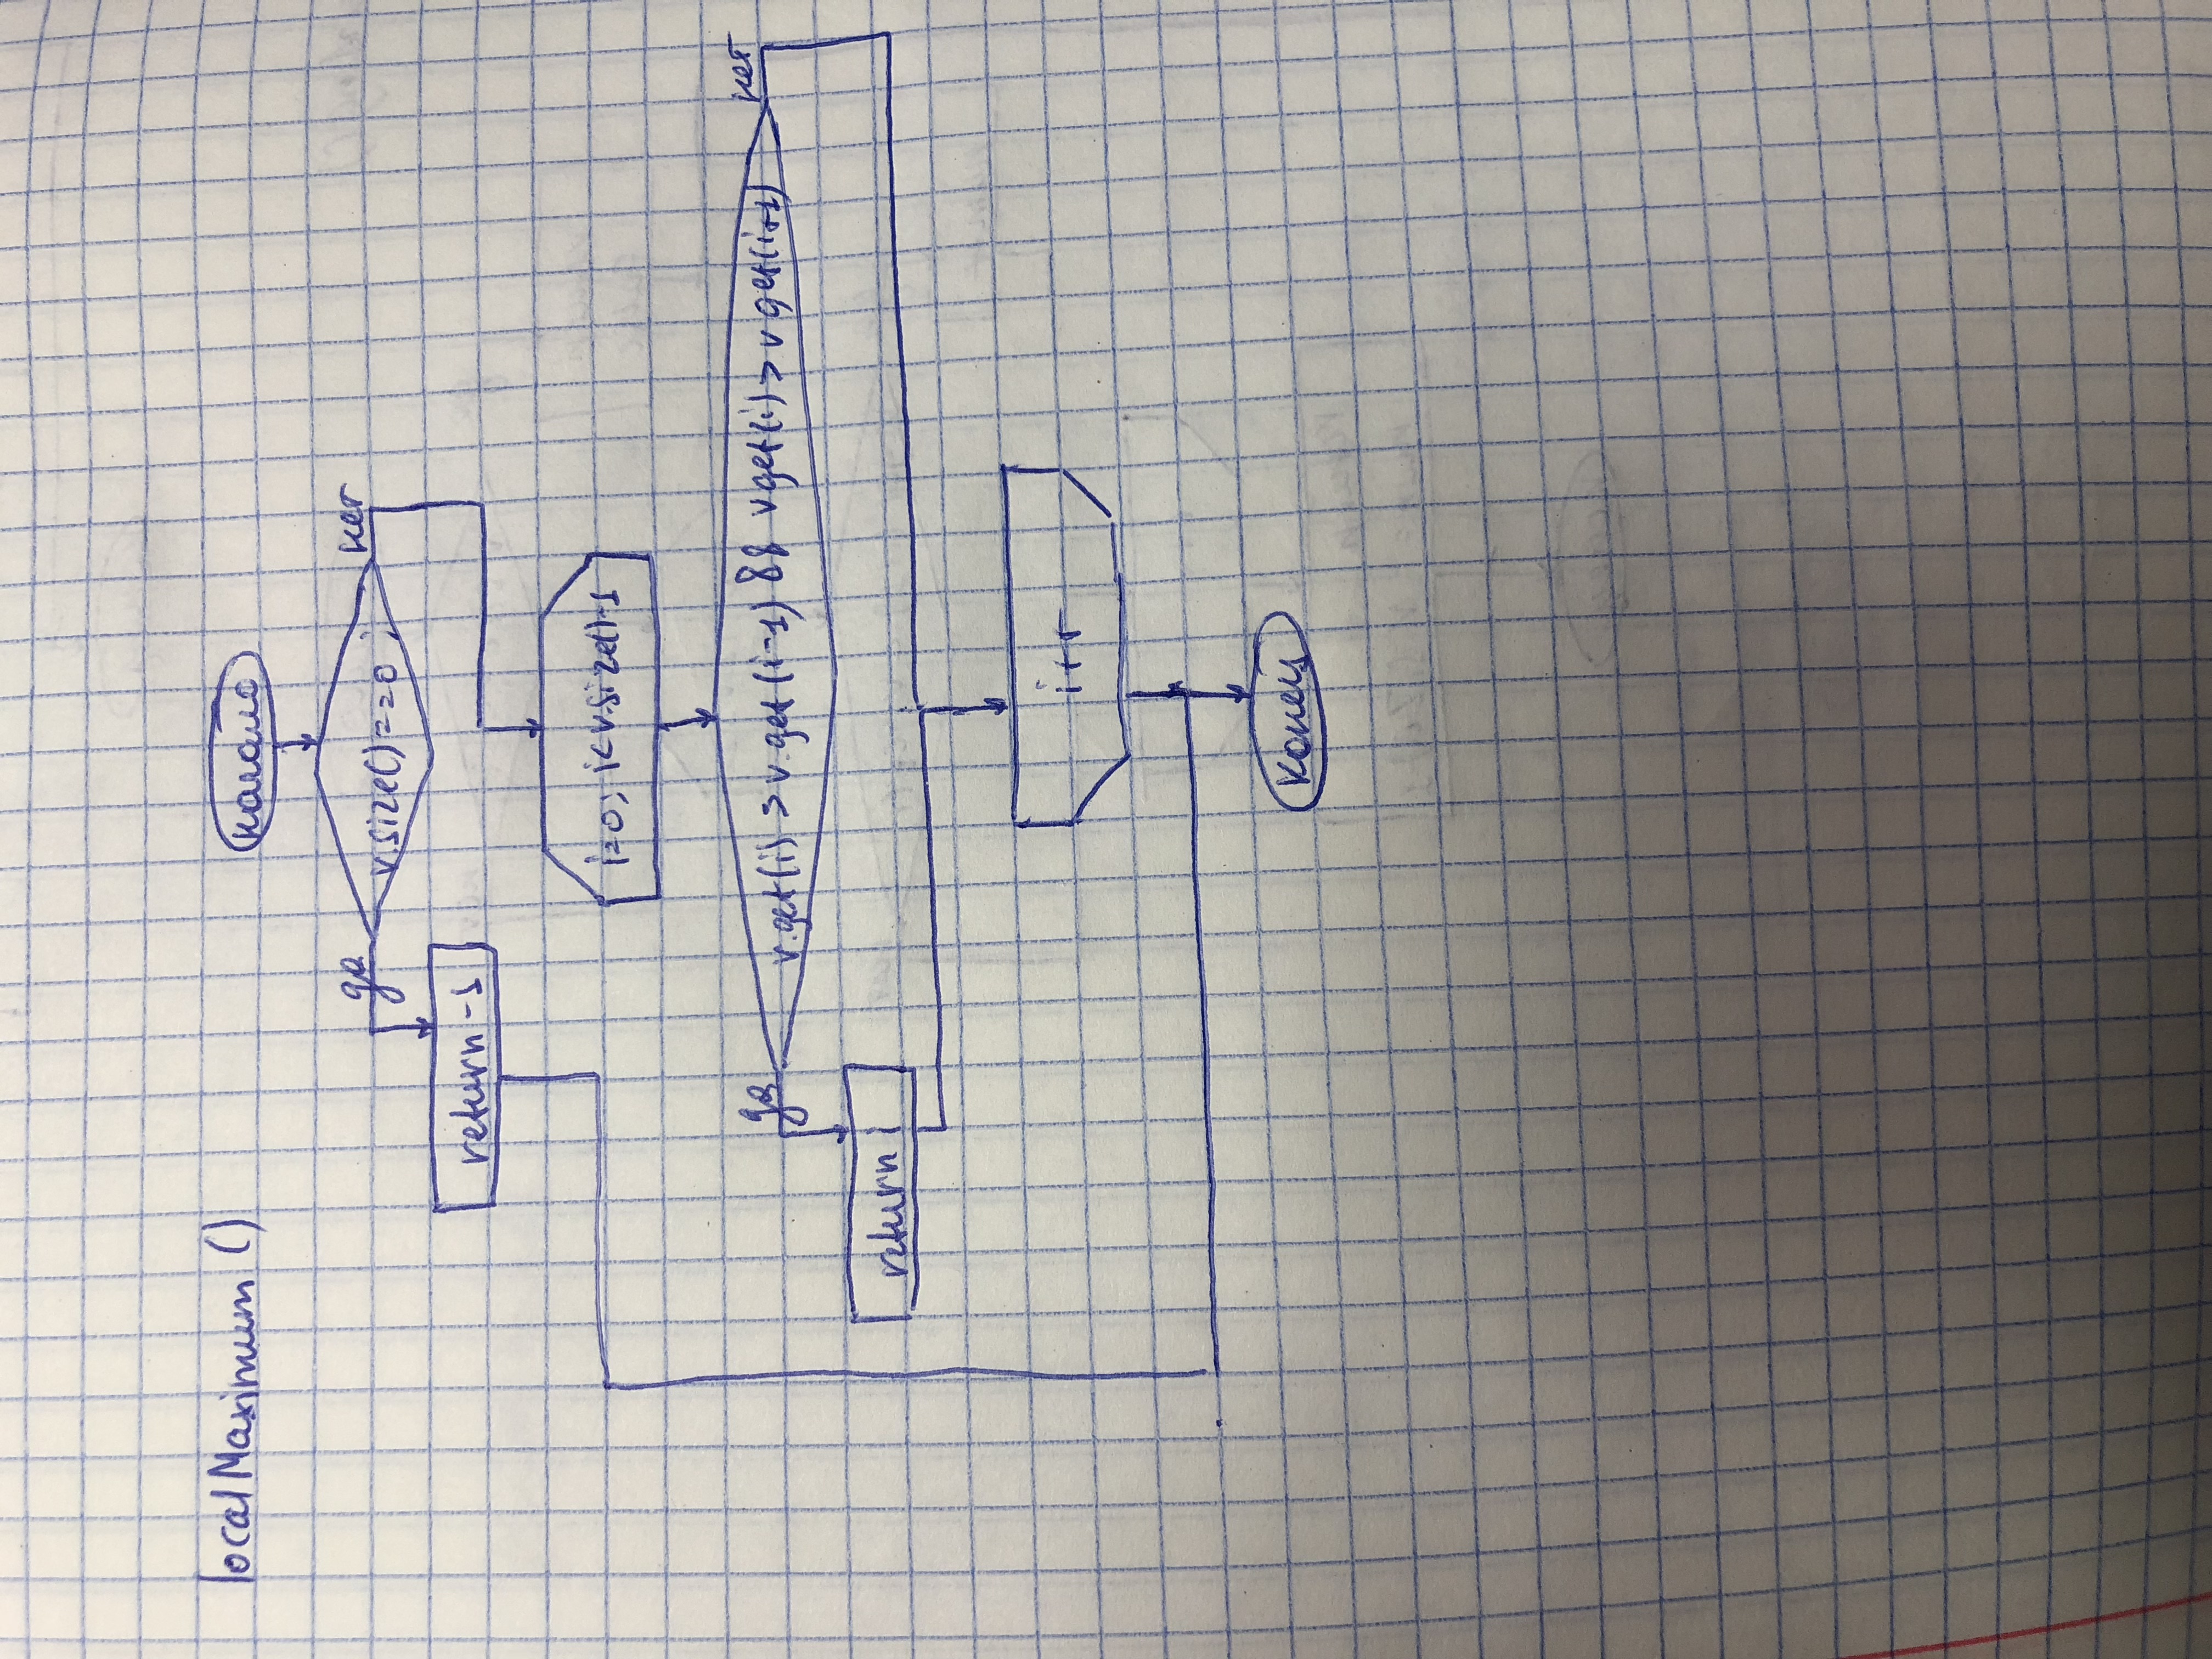 localMaximum ()
начало
да
нет
v.size()==0 ;
return -1
i=0; i<v.size()-1
да
нет
v.get(i) > v.get(i-1) && v get(i) > v get(i+1)
return i
i++
конец